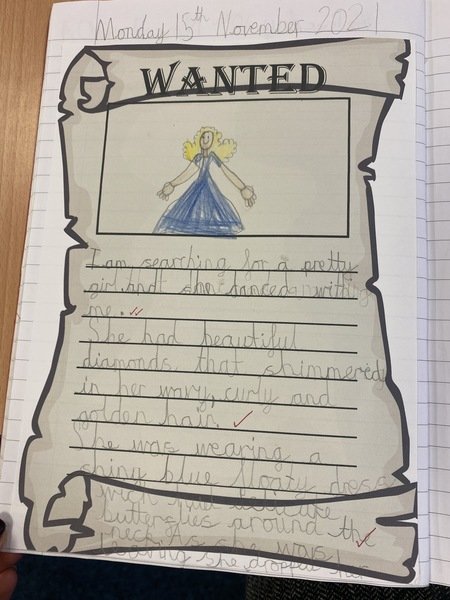 Monday 15th November 2021
WANTED
I am searching for a pretty
girl and she danced with
me.
She had beautiful
diamonds that shimmered
in her wavy, curly and
golden hair
She was wearing a
shiny blue floaty dress
with delicate
butterflies around the
neck. As she was
she dropped her